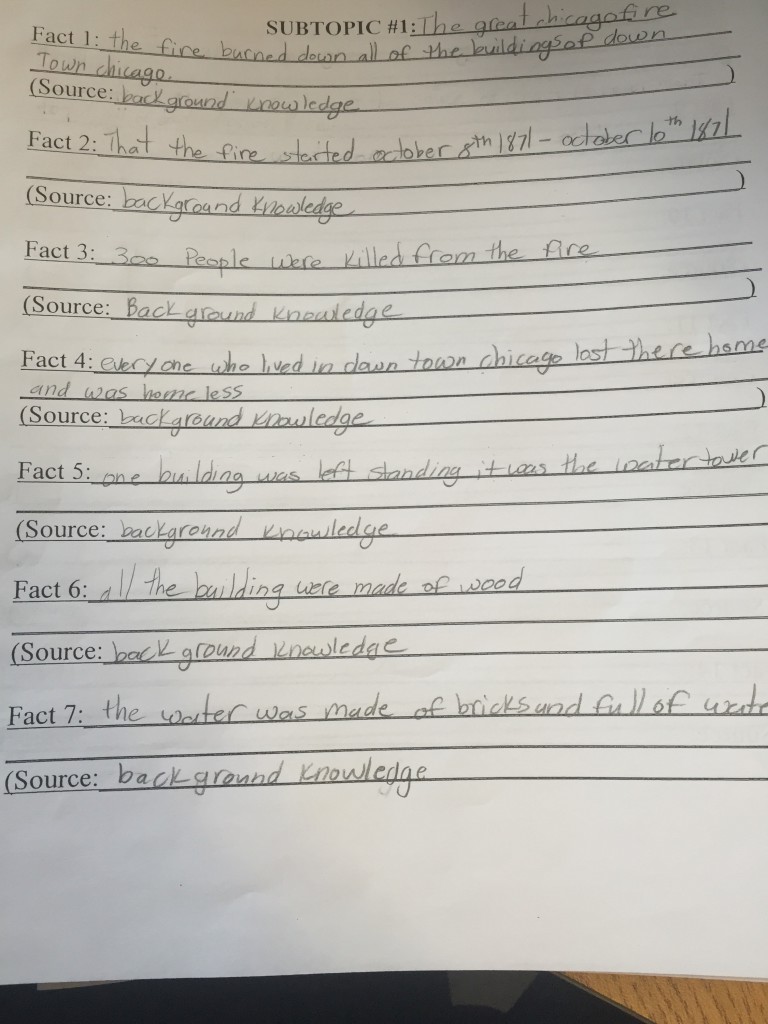 SUBTOPIC #1: The great chicago fire
Fact 1: the fire burned down all of the buildings of down
Town chicago.
(Source: background knowledge )
Fact 2: That the fire started october 8th 1871 - october 10th 1871
(Source: background knowledge )
Fact 3: 300 People were killed from the fire
(Source: Back ground knowledge )
Fact 4: every one who lived in down town chicago lost there home
and was home less
(Source: background knowledge )
Fact 5: one building was left standing it was the water tower
(Source: background knowledge
Fact 6: all the building were made of wood
(Source: back ground knowledge
Fact 7: the water was made of bricks and full of wate
(Source: back ground knowledge